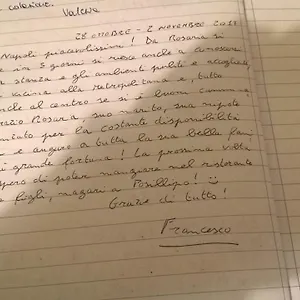 colorare.
Valeria
28 OTTOBRE - 2 NOVEMBRE 2018
Napoli piacevolissima! Da Rosaria si
e in 3 giorni si riesce anche a conoscere
stanza e gli ambienti puliti e accoglienti
vicina alla metropolitana e, tutto
anche al centro se si è buoni cammina
Rosaria, suo marito, sua nipote
per la costante disponibilità
e auguro a tutta la sua bella fami
grande fortuna! La prossima volta
spero di poter mangiare nel ristorante
figli, magari a Posillipo! ☺
Grazie di tutto!
Francesco